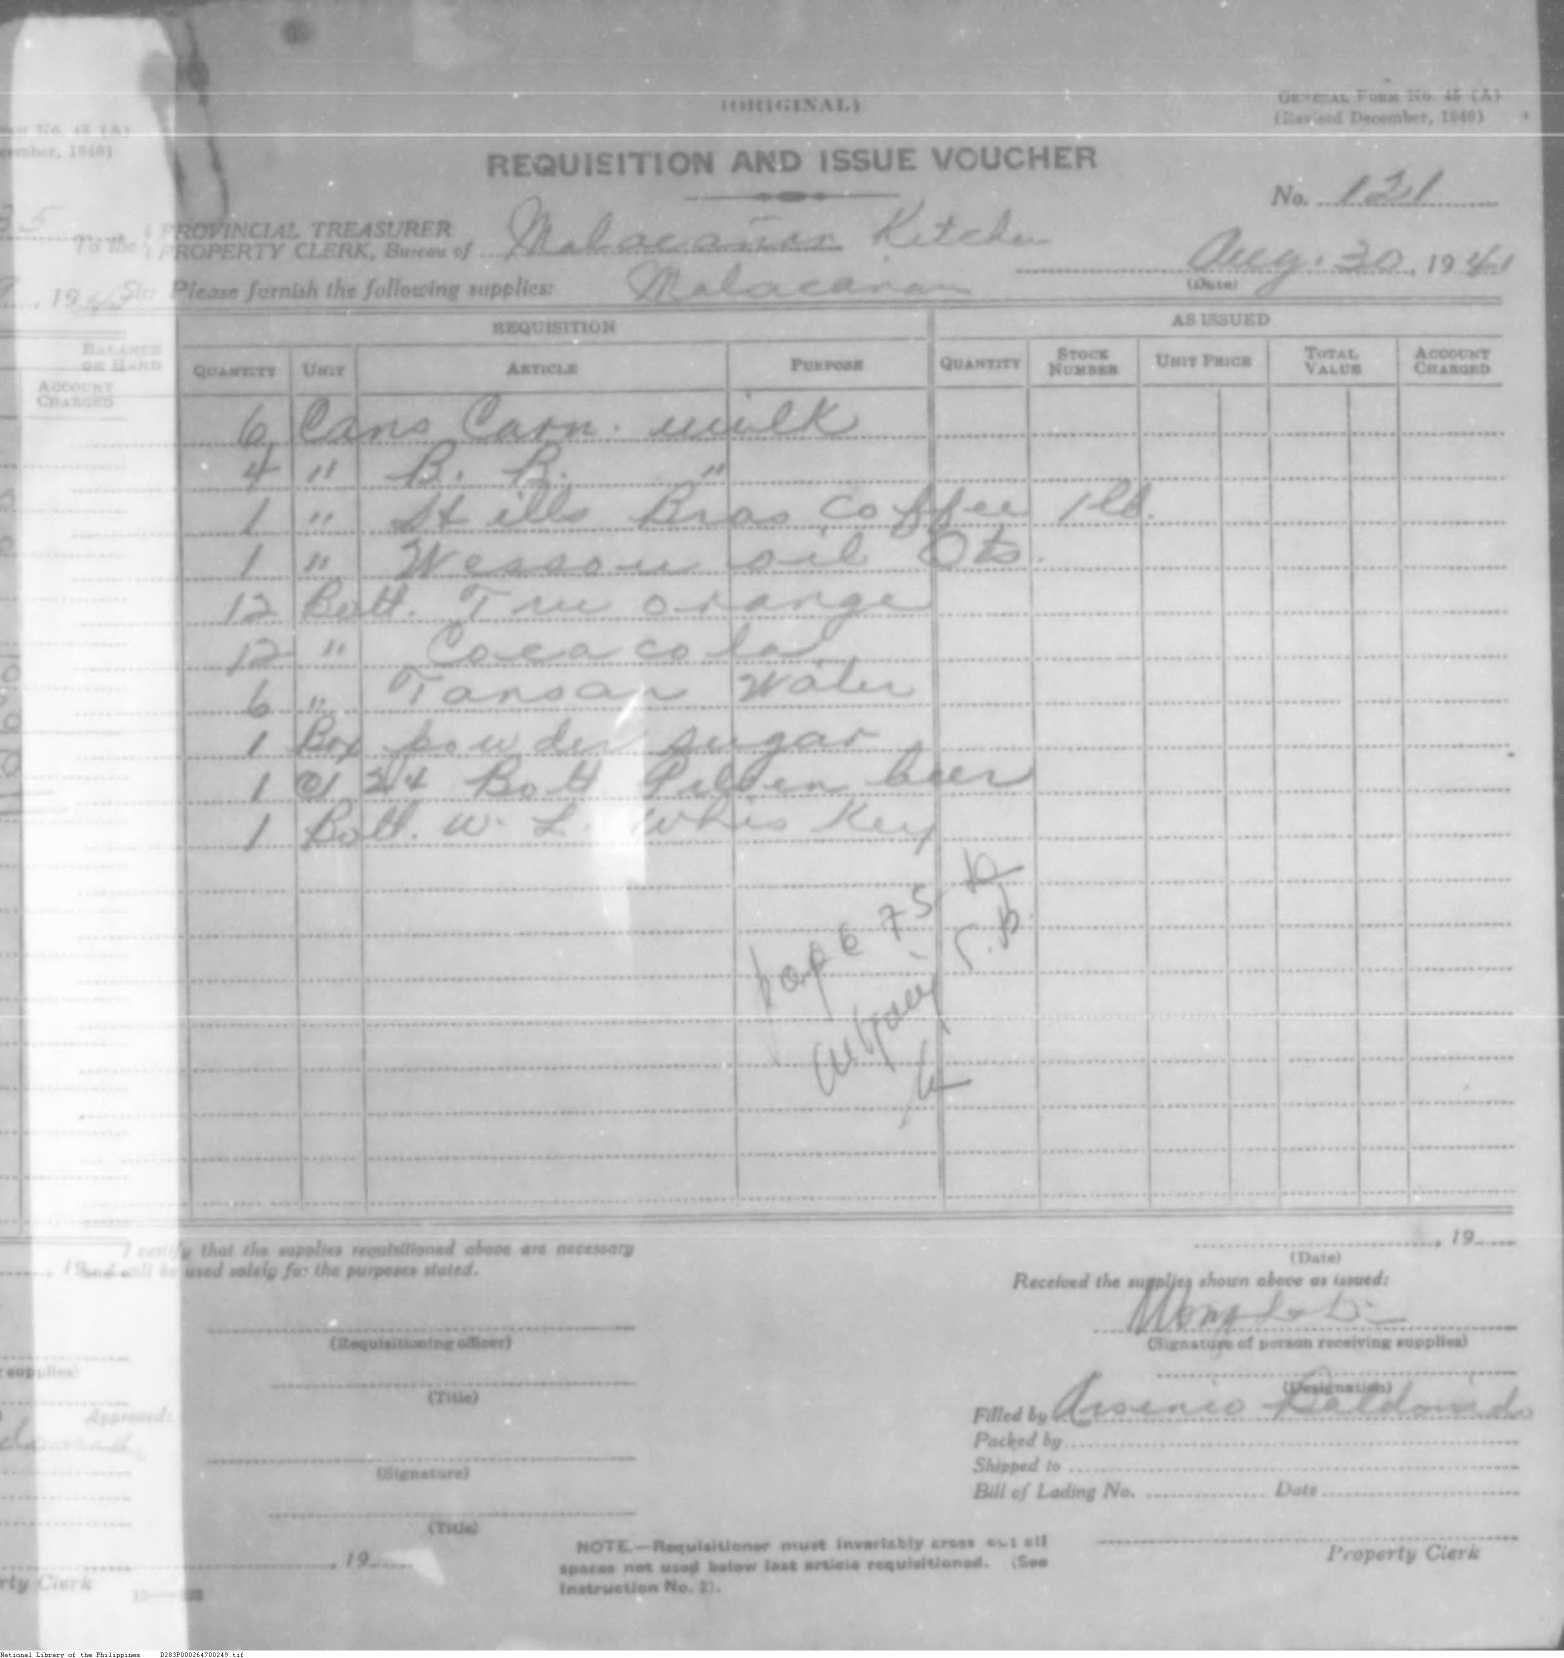 (ORIGINAL)
GENERAL FORM No. 45 (A)
(Revised December, 1940)
REQUISITION AND ISSUE VOUCHER
No. 121
To the PROVINCIAL TREASURER
PROPERTY CLERK, Bureau of Malacañan Kitchen
Aug. 30, 1941
(Date)
Sir: Please furnish the following supplies: Malacañan
REQUISITION
AS ISSUED
QUANTITY UNIT ARTICLE PURPOSE QUANTITY STOCK NUMBER UNIT PRICE TOTAL VALUE ACCOUNT CHARGED
6 Cans Carn. milk
4 " B. B. "
1 " Hills Bros Coffee 1 lb.
1 " Wesson oil Qts.
12 Bott. Tru orange
12 " Coca cola
6 " Tansan Water
1 Box powder sugar
1 c/ 24 Bott Pilsen beer
1 Bott. W. L. Whiskey
I certify that the supplies requisitioned above are necessary
and will be used solely for the purposes stated.
, 19
(Date)
Received the supplies shown above as issued:
(Requisitioning officer)
(Signature of person receiving supplies)
(Title)
(Designation)
Approved:
Filled by Arsenio
Packed by
Shipped to
(Signature)
Bill of Lading No. Date
(Title)
, 19
NOTE.—Requisitioner must invariably cross out all
spaces not used below last article requisitioned. (See
Instruction No. 2).
Property Clerk
National Library of the Philippines D283P000264700249.tif